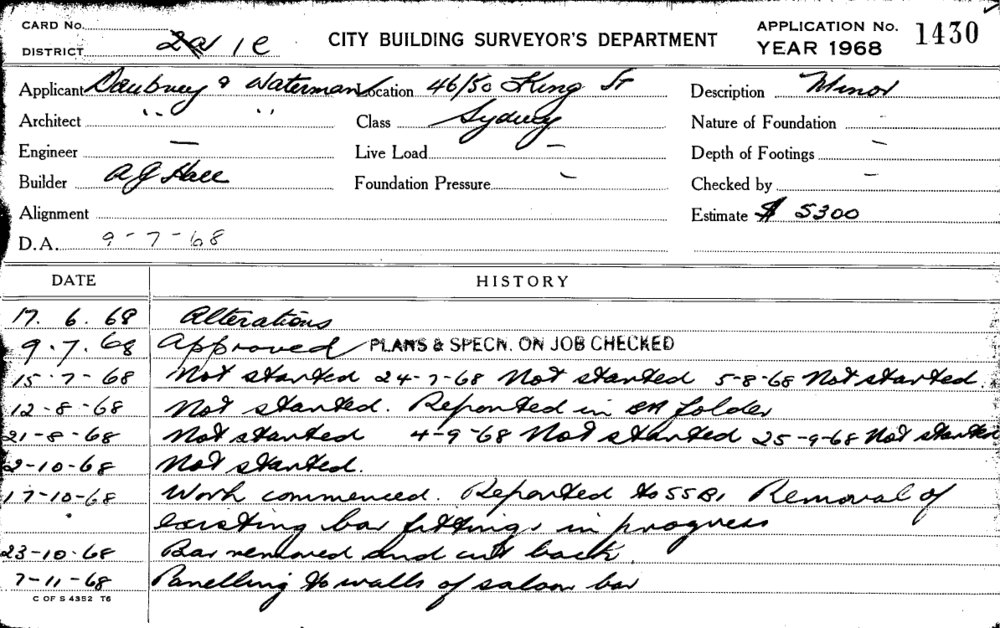 CARD No.
DISTRICT 2a 1c
CITY BUILDING SURVEYOR'S DEPARTMENT
APPLICATION No. 1430
YEAR 1968
Applicant Daubney & Waterman Location 46/50 King St Description Minor
Architect " " Class Sydney Nature of Foundation -
Engineer - Live Load - Depth of Footings -
Builder A J Hall Foundation Pressure - Checked by -
Alignment Estimate $ 5300
D.A. 9-7-68
DATE HISTORY
17. 6. 68 Alterations
9.7.68 Approved PLANS & SPECN. ON JOB CHECKED
15-7-68 Not started 24-7-68 Not started 5-8-68 Not started.
12-8-68 Not started. Reported in folder
21-8-68 Not started 4-9-68 Not started 25-9-68 Not started
2-10-68 Not started.
17-10-68 Work commenced. Reported to SSBI Removal of
existing bar fittings in progress
23-10-68 Bar removed and cut back.
7-11-68 Panelling to walls of saloon bar
C OF S 4352 T6